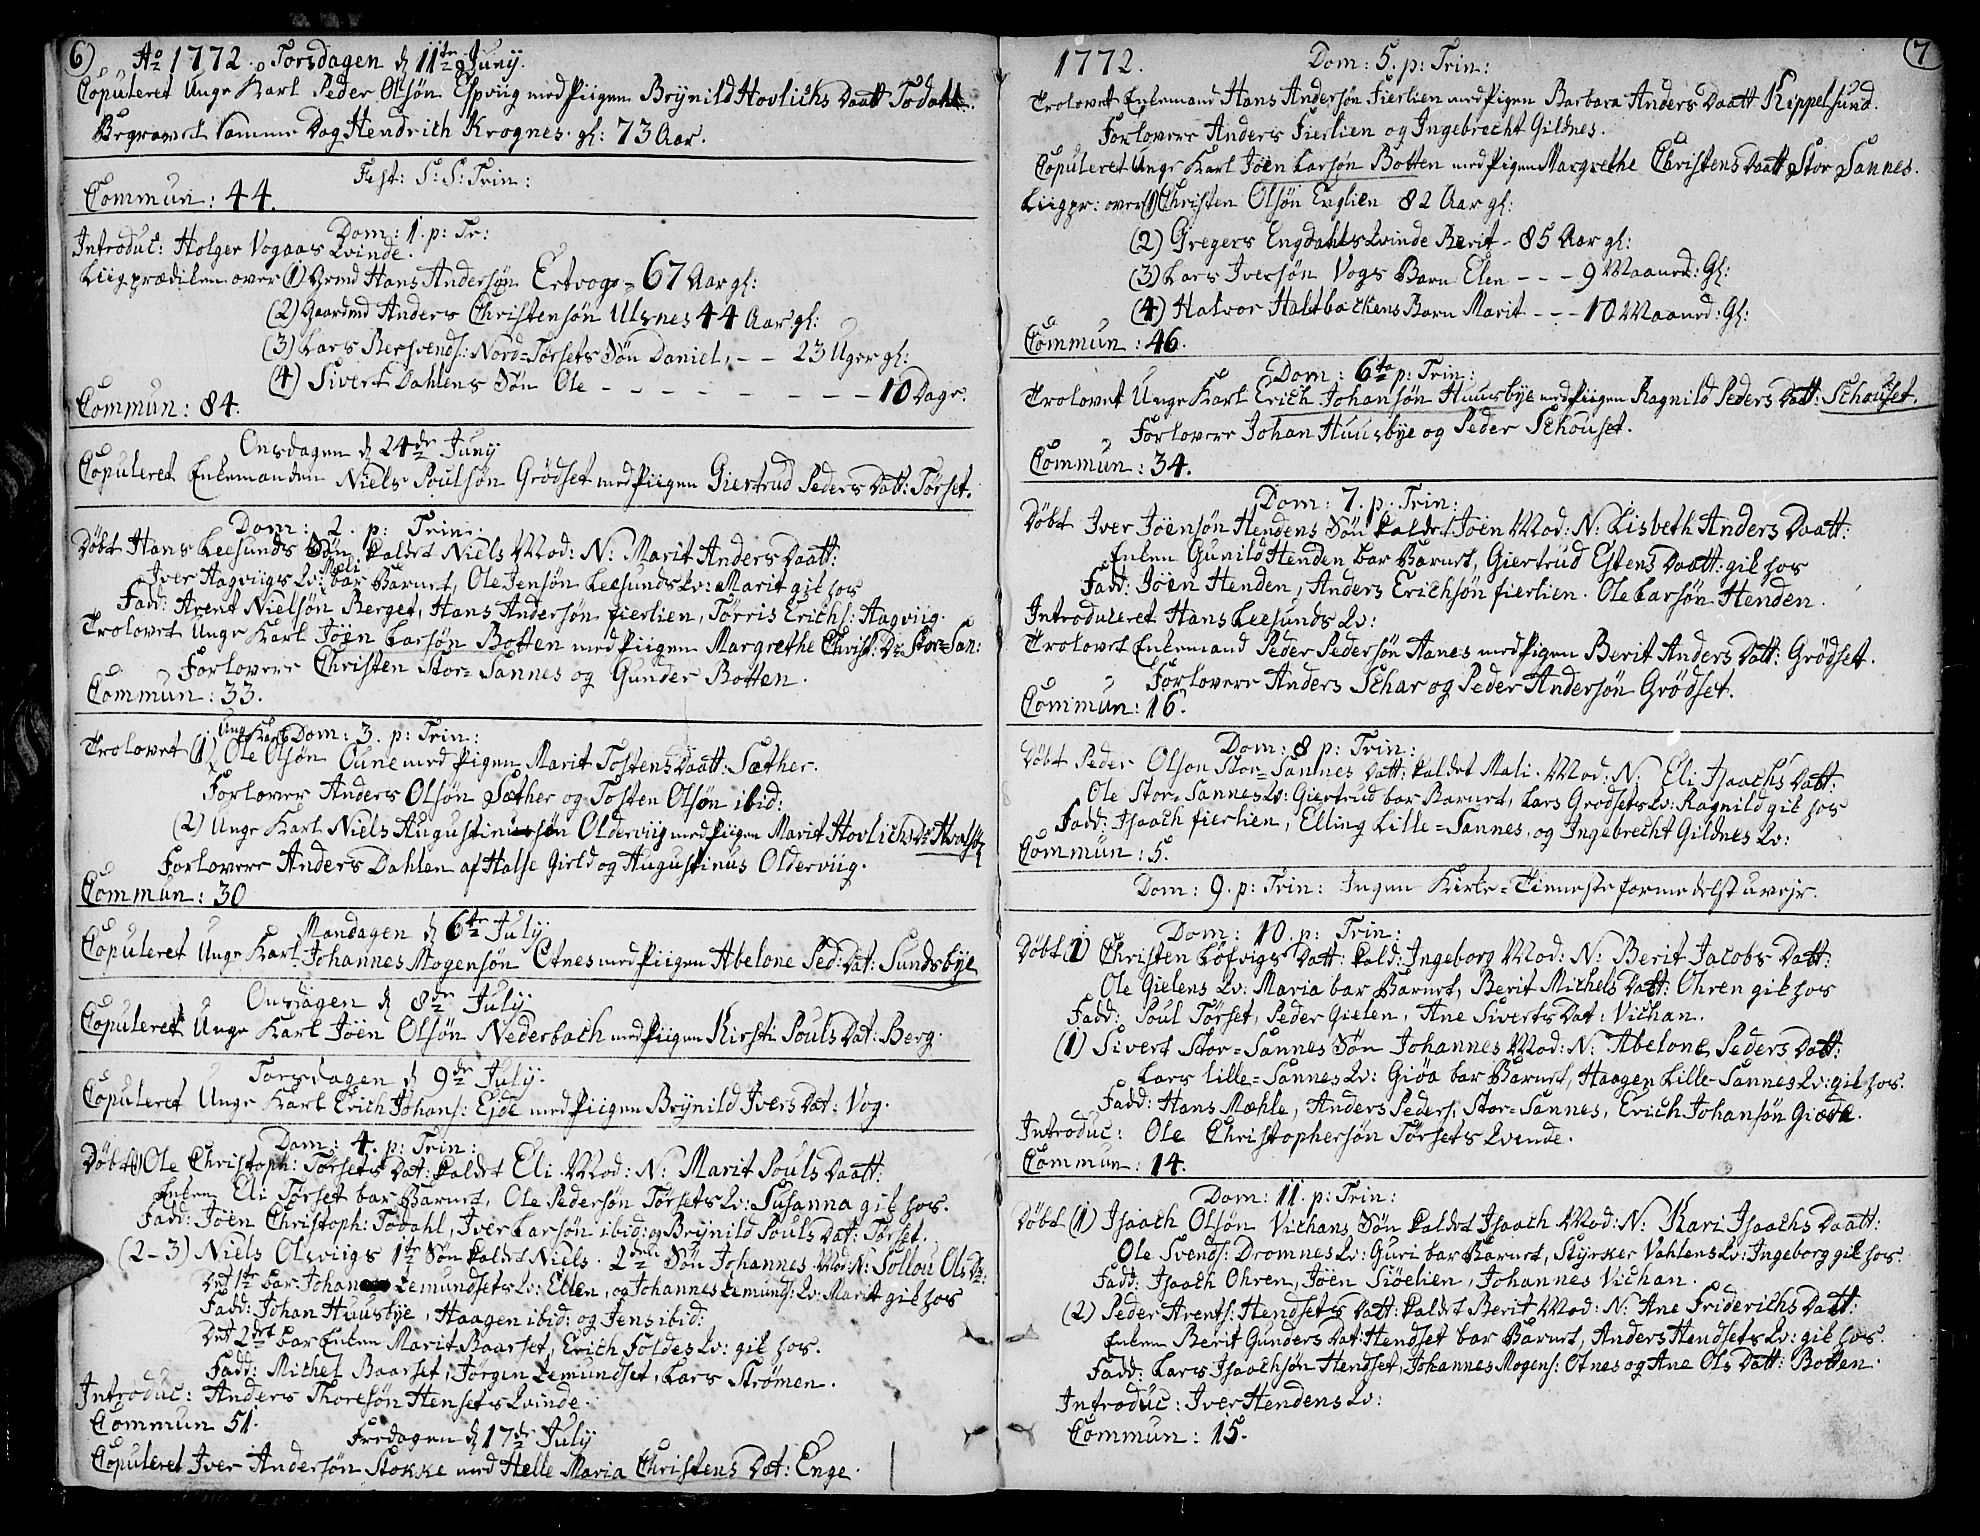 6) Ao 1772. Torsdagen d 11te Junij.
Copuleret Unge Karl Peder Olsön Espviig med Piigen Brÿnild Hovlichs Daatt Todahl.
Begravet samme Dag Hendrich Krognes. gl: 73 Aar.
Fest: S: S: Trin:
Commun: 44.
Dom: 1. p: Tr:
Introduc: Holger Vogaas Qvinde.
Liigprædiken over (1) Hans Andersön Ertvog 67 Aar gl:
(2) Gaardmd Anders Christensön Ulsnes 44 Aar gl:
(3) Lars Bersvends: Nord-Törsets Sön Daniel, - - 23 Uger gl:
(4) Sivert Dahlens Sön Ole - - - - - - - - 10 Dage.
Commun: 84.
Onsdagen d 24de Junij
Copuleret Enkemanden Niels Poulsön Grödset med Piigen Giertrud Peders Datt: Törset.
Dom: 2. p: Trin:
Döbt Hans Leesunds Sön kaldet Niels Mod: N: Marit Anders Daatt:
Iver Hagviigs Qv: Mali bar Barnet, Ole Jensön Leesunds Qv: Marit gik hos
Fadd: Arent Nielsön Berget, Hans Andersön fierlien, Törris Erichs: Hagviig.
Trolovet Unge Karl Jöen Larsön Botten med Piigen Margrethe Christ: Dr Stor-San:
Forlovere Christen Stor-Sannes og Gunder Botten.
Commun: 33.
Dom: 3. p: Trin:
Trolovet (1) Unge Karl Ole Olsön Oune med Pigen Marit Tostens Daatt: Sæther.
Forlover Anders Olsön Sæther og Tosten Olsön ibid:
(2) Unge Karl Niels Augustinusön Olderviig med Piigen Marit Hovlichs Dr
Forlovere Anders Dahlen af Halse Gield og Augustinus Olderviig.
Commun: 30
Mandagen d 6te July
Copuleret Unge Karl Johannes Mogensön Otnes med Piigen Abelone Ped: Dat: Sundsbÿe
Onsdagen d 8de July
Copuleret Unge Karl Jöen Olsön Nederbach med Piigen Kirsti Pouls Dat: Berg.
Torsdagen d 9de July.
Copuleret Unge Karl Erich Johans: Eide med Piigen Brÿnild Ivers Dat: Vog.
Dom: 4. p: Trin:
Döbt (1) Ole Christoph: Törsets Dat: kaldet Eli. Mod: N: Marit Pouls Daatt:
Enken Eli Törset bar Barnet, Ole Pedersön Törsets Qv: Susanna gik hos.
Fadd: Jöen Christoph: Todahl, Iver Larsön ibid: og Brÿnild Pouls Dat: Törset.
(2-3) Niels Olsviigs 1te Sön kaldet Niels. 2den Sön Johannes. Mod: N: Sollou Ols Dr:
Det 1te bar Johan Lemundsets Qv: Ellen, og Johannes Lemunds: Qv: Marit gik hos
Fadd: Johan Huusbÿe, Haagen ibid: og Jens ibid:
Det 2det bar Enken Marit Baarset, Erich Foldes Qv: gik hos.
Fadd: Michel Baarset, Jörgen Lemundset, Lars Strömen.
Introduc: Anders Thoresön Hensets Qvinde.
Commun 51.
Fredagen d 17de July
Copuleret Iver Andersön Stokke med Helle Maria Christens Dat: Enge.
1772. Dom: 5. p: Trin: 7
Trolovet Enkemand Hans Andersön Fierlien med Pigen Barbara Anders Daatt Kippelsund.
Forlovere Anders Fierlien og Ingebrecht Gildnes.
Copuleret Unge Karl Jöen Larsön Botten med Pigen Margrethe Christens Daatt Stor Sannes.
Liigpr: over (1) Christen Olsön Englien 82 Aar gl:
(2) Gregers Engdahls Qvinde Berit - 85 Aar gl:
(3) Lars Iversön Vogs Barn Elen - - - 9 Maaned: Gl:
(4) Halvor Haltbackens Barn Marit - - - 10 Maaned: Gl:
Commun: 46.
Dom: 6te p: Trin:
Trolovet Unge Karl Erich Johansön Huusbÿe med Piigen Ragnild Peders Datt: Schouset.
Forlovere Johan Huusbÿe og Peder Schouset.
Commun: 34.
Dom: 7. p: Trin:
Döbt Iver Jöensön Hendens Sön kaldet Jöen Mod: N: Lisbeth Anders Daatt:
Enken Gunild Henden bar Barnet, Giertrud Estens Daatt: gik hos
Fadd: Jöen Henden, Anders Erichsön fierlien. Ole Larsön Henden.
Introduceret Hans Leesunds Qv:
Trolovet Enkemand Peder Pedersön Aanes med Pigen Berit Anders Datt: Grödset.
Forlovere Anders Schar og Peder Andersön Grödset.
Commun: 16.
Dom: 8 p: Trin:
Döbt Peder Olsön Stor-Sannes Datt: kaldet Mali. Mod: N: Eli Isaachs Datt:
Ole Stor-Sannes Qv: Giertrud bar Barnet, Lars Grödsets Qv: Ragnild gik hos
Fadd: Isaach fierlien, Elling Lille-Sannes, og Ingebrecht Gildnes Qv:
Commun: 5.
Dom: 9. p: Trin: Ingen Kirke-Tienneste formedelst uvejr.
Dom: 10. p: Trin:
Döbt (1) Christen Löfvigs Datt: kald: Ingeborg Mod: N: Berit Jacobs Datt:
Ole Gielens Qv: Maria bar Barnet, Berit Michels Datt: Ohren gik hos
Fadd: Poul Törset, Peder Gielen, Ane Siverts Dat: Vichan.
(1) Sivert Stor-Sannes Sön Johannes Mod: N: Abelone Peders Datt:
Lars Lille-Sannes Qv: Giöa bar Barnet, Haagen Lille-Sannes Qv: gik hos.
Fadd: Hans Mæhle, Anders Peders: Stor-Sannes, Erich Johansön
Introduc: Ole Christophersön Törsets Qvinde.
Commun: 14.
Dom: 11. p: Trin:
Döbt (1) Isaach Olsön Vichans Sön kaldet Isaach Mod: N: Kari Isaachs Daatt:
Ole Svends: Dromnes Qv: Guri bar Barnet, Styrker Vahlens Qv: Ingeborg gik hos.
Fadd: Isaach Ohren, Jöen Siöelien, Johannes Vichan.
(2) Peder Arents: Hendsets Datt: kaldet Berit Mod: N: Ane Friderichs Datt:
Enken Berit Gunders Dat: Hendset bar Barnet, Anders Hendsets Qv: gik hos.
Fadd: Lars Isaachsön Hendset, Johannes Mogens: Otnes og Ane Ols Datt: Botten.
Introduc: Iver Hendens Qv:
Commun: 15.